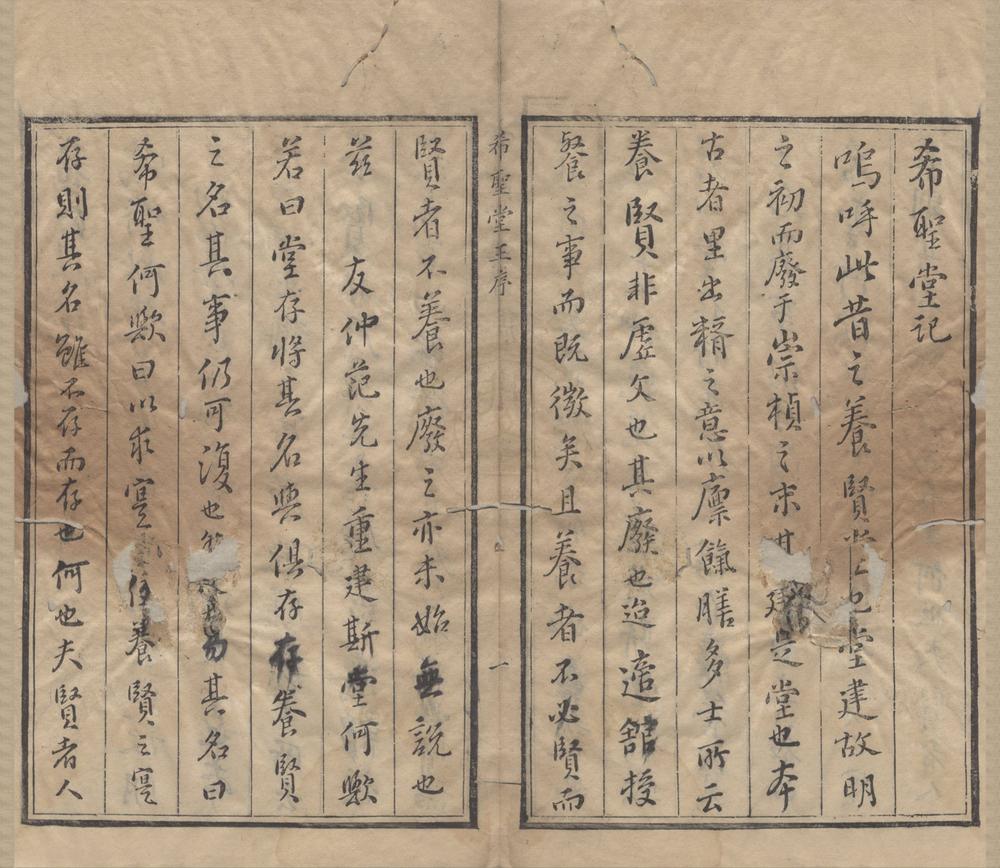 希聖堂記
嗚呼此昔之養賢堂也堂建故明
之初而廢于崇楨之末其建是堂也本
古者里出糈之意以廩餼膳多士所云
養賢非虛文也其廢也迨適舘授
餐之事而既微矣且養者不必賢而
希聖堂王序
一
賢者不養也廢之亦未始無說也
玆友仲范先生重建斯堂何歟
若曰堂存將其名與俱存存養賢
之名其事仍可復也易其名曰
希聖何歟曰以求寔養賢之寔
存則其名雖不存而存也何也夫賢者人